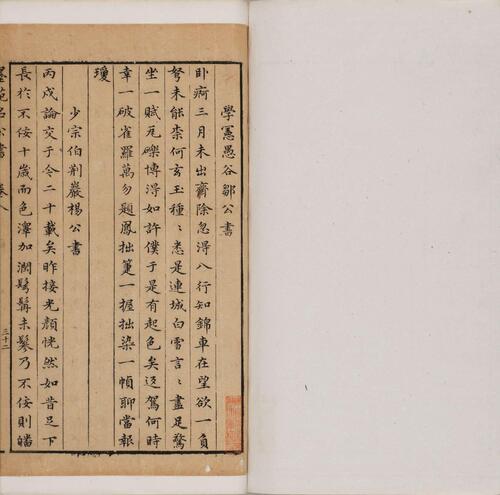 學憲愚谷鄒公書
臥痾三月未出齋除忽得八行知錦車在望欲一負
弩未能柰何玄玉種〻悉是連城白雪言〻盡足驚
坐一賦瓦礫博得如許僕于是有起色矣迓駕何時
幸一破雀羅萬勿題鳳拙箑一握拙染一幀聊當報
瓊
少宗伯荊巖楊公書
丙戌論交于今二十載矣昨接光顏恍然如昔足下
長於不佞十歲而色澤加潤鬚髯未鬖乃不佞則皤
名公書 卷八 三十二